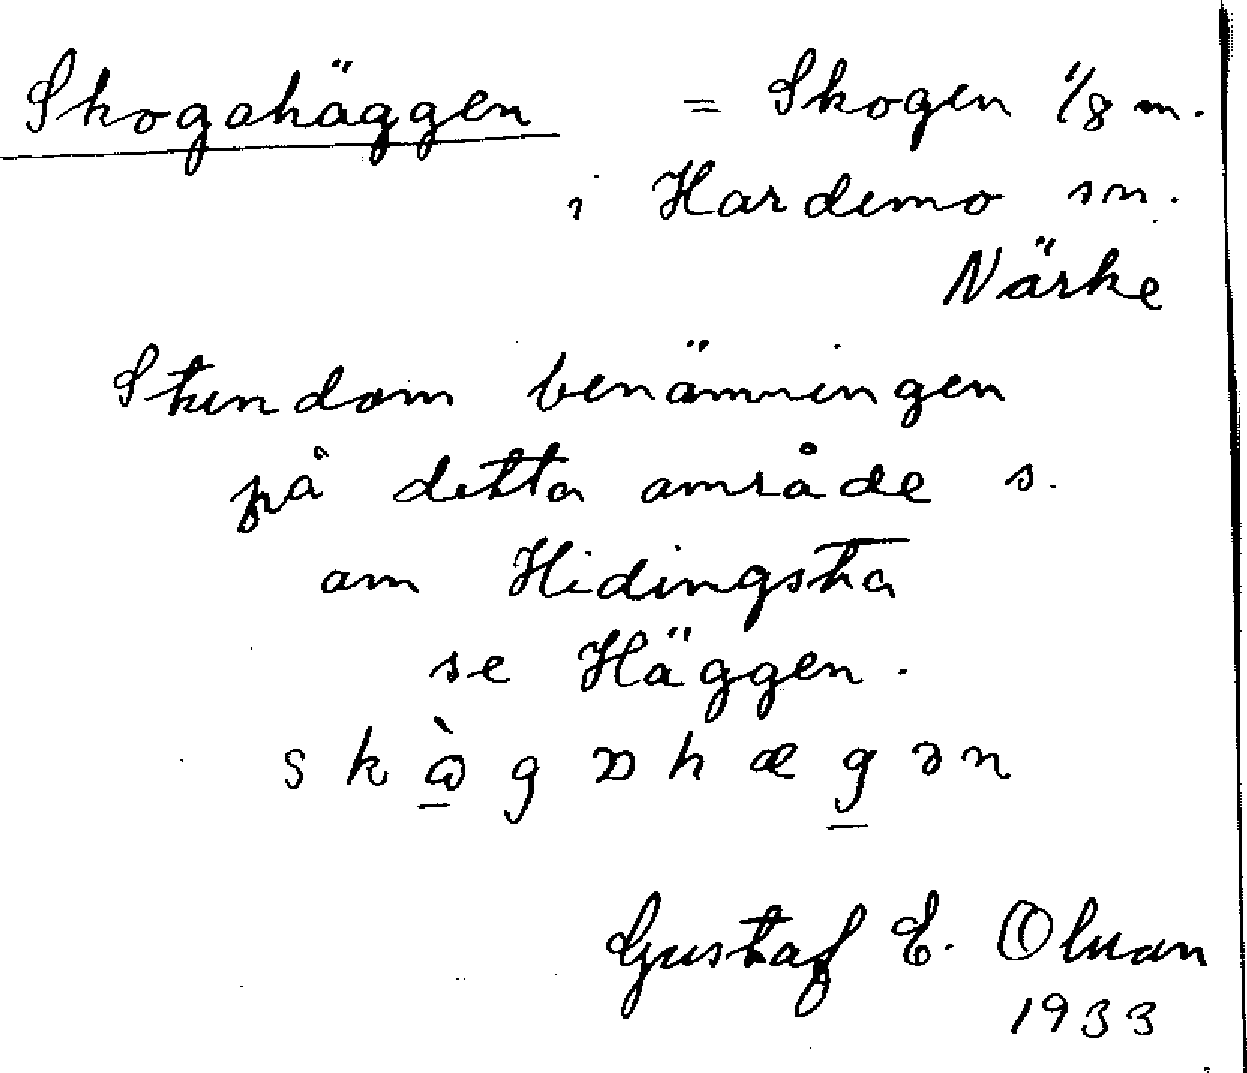 Skogahäggen = Skogen 1/8 m.
i Hardemo sn.
Närke
Stundom benämningen
på detta område s.
om Hidingsta
se Häggen.
Gustaf E. Olsson
1933